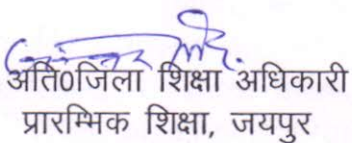 अति0जिला शिक्षा अधिकारी
प्रारम्भिक शिक्षा, जयपुर